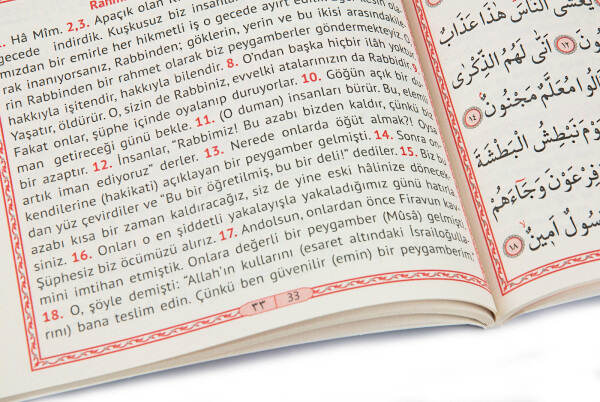 Rahm
1. Hâ Mîm. 2,3. Apaçık olan
gecede indirdik. Kuşkusuz biz insanla
mızdan bir emirle her hikmetli iş o gecede ayırt
rak inanıyorsanız, Rabbinden; göklerin, yerin ve bu ikisi arasındakile
rin Rabbinden bir rahmet olarak biz peygamberler göndermekteyiz.
hakkıyla işitendir, hakkıyla bilendir. 8. O'ndan başka hiçbir ilâh yoktur.
Yaşatır, öldürür. O, sizin de Rabbiniz, evvelki atalarınızın da Rabbidir. 9.
Fakat onlar, şüphe içinde oyalanıp duruyorlar. 10. Göğün açık bir du-
man getireceği günü bekle. 11. (O duman) insanları bürür. Bu, elem
bir azaptır. 12. İnsanlar, "Rabbimiz! Bu azabı bizden kaldır, çünkü biz
artık iman ediyoruz" derler. 13. Nerede onlarda öğüt almak?! Oysa
kendilerine (hakikati) açıklayan bir peygamber gelmişti. 14. Sonra on-
dan yüz çevirdiler ve "Bu bir öğretilmiş, bu bir deli!" dediler. 15. Biz bu
azabı kısa bir zaman kaldıracağız, siz de yine eski hâlinize dönecek-
siniz. 16. Onları o en şiddetli yakalayışla yakaladığımız günü hatırla.
Şüphesiz biz öcümüzü alırız. 17. Andolsun, onlardan önce Firavun kav-
mini imtihan etmiştik. Onlara değerli bir peygamber (Mûsâ) gelmişti.
18. O, şöyle demişti: "Allah'ın kullarını (esaret altındaki İsrailoğulla-
rını) bana teslim edin. Çünkü ben güvenilir (emin) bir peygamberim."
٣٣ 33
يَغْشَى النَّاسَ هٰذَا عَذَابٌ
١٢ اَنّٰى لَهُمُ الذِّكْرٰى
مُعَلَّمٌ مَجْنُونٌ
١٤
نَبْطِشُ الْبَطْشَةَ
فِرْعَوْنَ وَجَٓاءَهُمْ
رَسُولٌ اَمِينٌ ١٨